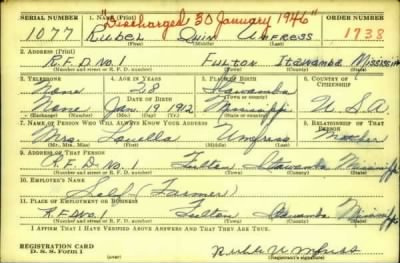 "Discharged 30 January 1946"
SERIAL NUMBER 1. NAME (Print) ORDER NUMBER
1077 Rubel Quin Umfress 1738
(First) (Middle) (Last)
2. ADDRESS (Print)
R.F.D. No. 1 Fulton Itawamba Mississippi
(Number and street or R. F. D. number) (Town) (County) (State)
3. TELEPHONE 4. AGE IN YEARS 5. PLACE OF BIRTH 6. COUNTRY OF CITIZENSHIP
None 28 Itawamba
(Town or county)
DATE OF BIRTH
None Jan. 19 1912 Mississippi U.S.A.
(Exchange) (Number) (Mo.) (Day) (Yr.) (State or country)
7. NAME OF PERSON WHO WILL ALWAYS KNOW YOUR ADDRESS 8. RELATIONSHIP OF THAT PERSON
Mrs. Louella Umfress Mother
(Mr., Mrs., Miss) (First) (Middle) (Last)
9. ADDRESS OF THAT PERSON
R.F.D. No. 1 Fulton Itawamba Mississippi
(Number and street or R. F. D. number) (Town) (County) (State)
10. EMPLOYER'S NAME
Self (Farmer)
11. PLACE OF EMPLOYMENT OR BUSINESS
R.F.D. No. 1 Fulton Itawamba Mississippi
(Number and street or R. F. D. number) (Town) (County) (State)
I AFFIRM THAT I HAVE VERIFIED ABOVE ANSWERS AND THAT THEY ARE TRUE.
REGISTRATION CARD
D. S. S. Form 1
(Registrant's signature)